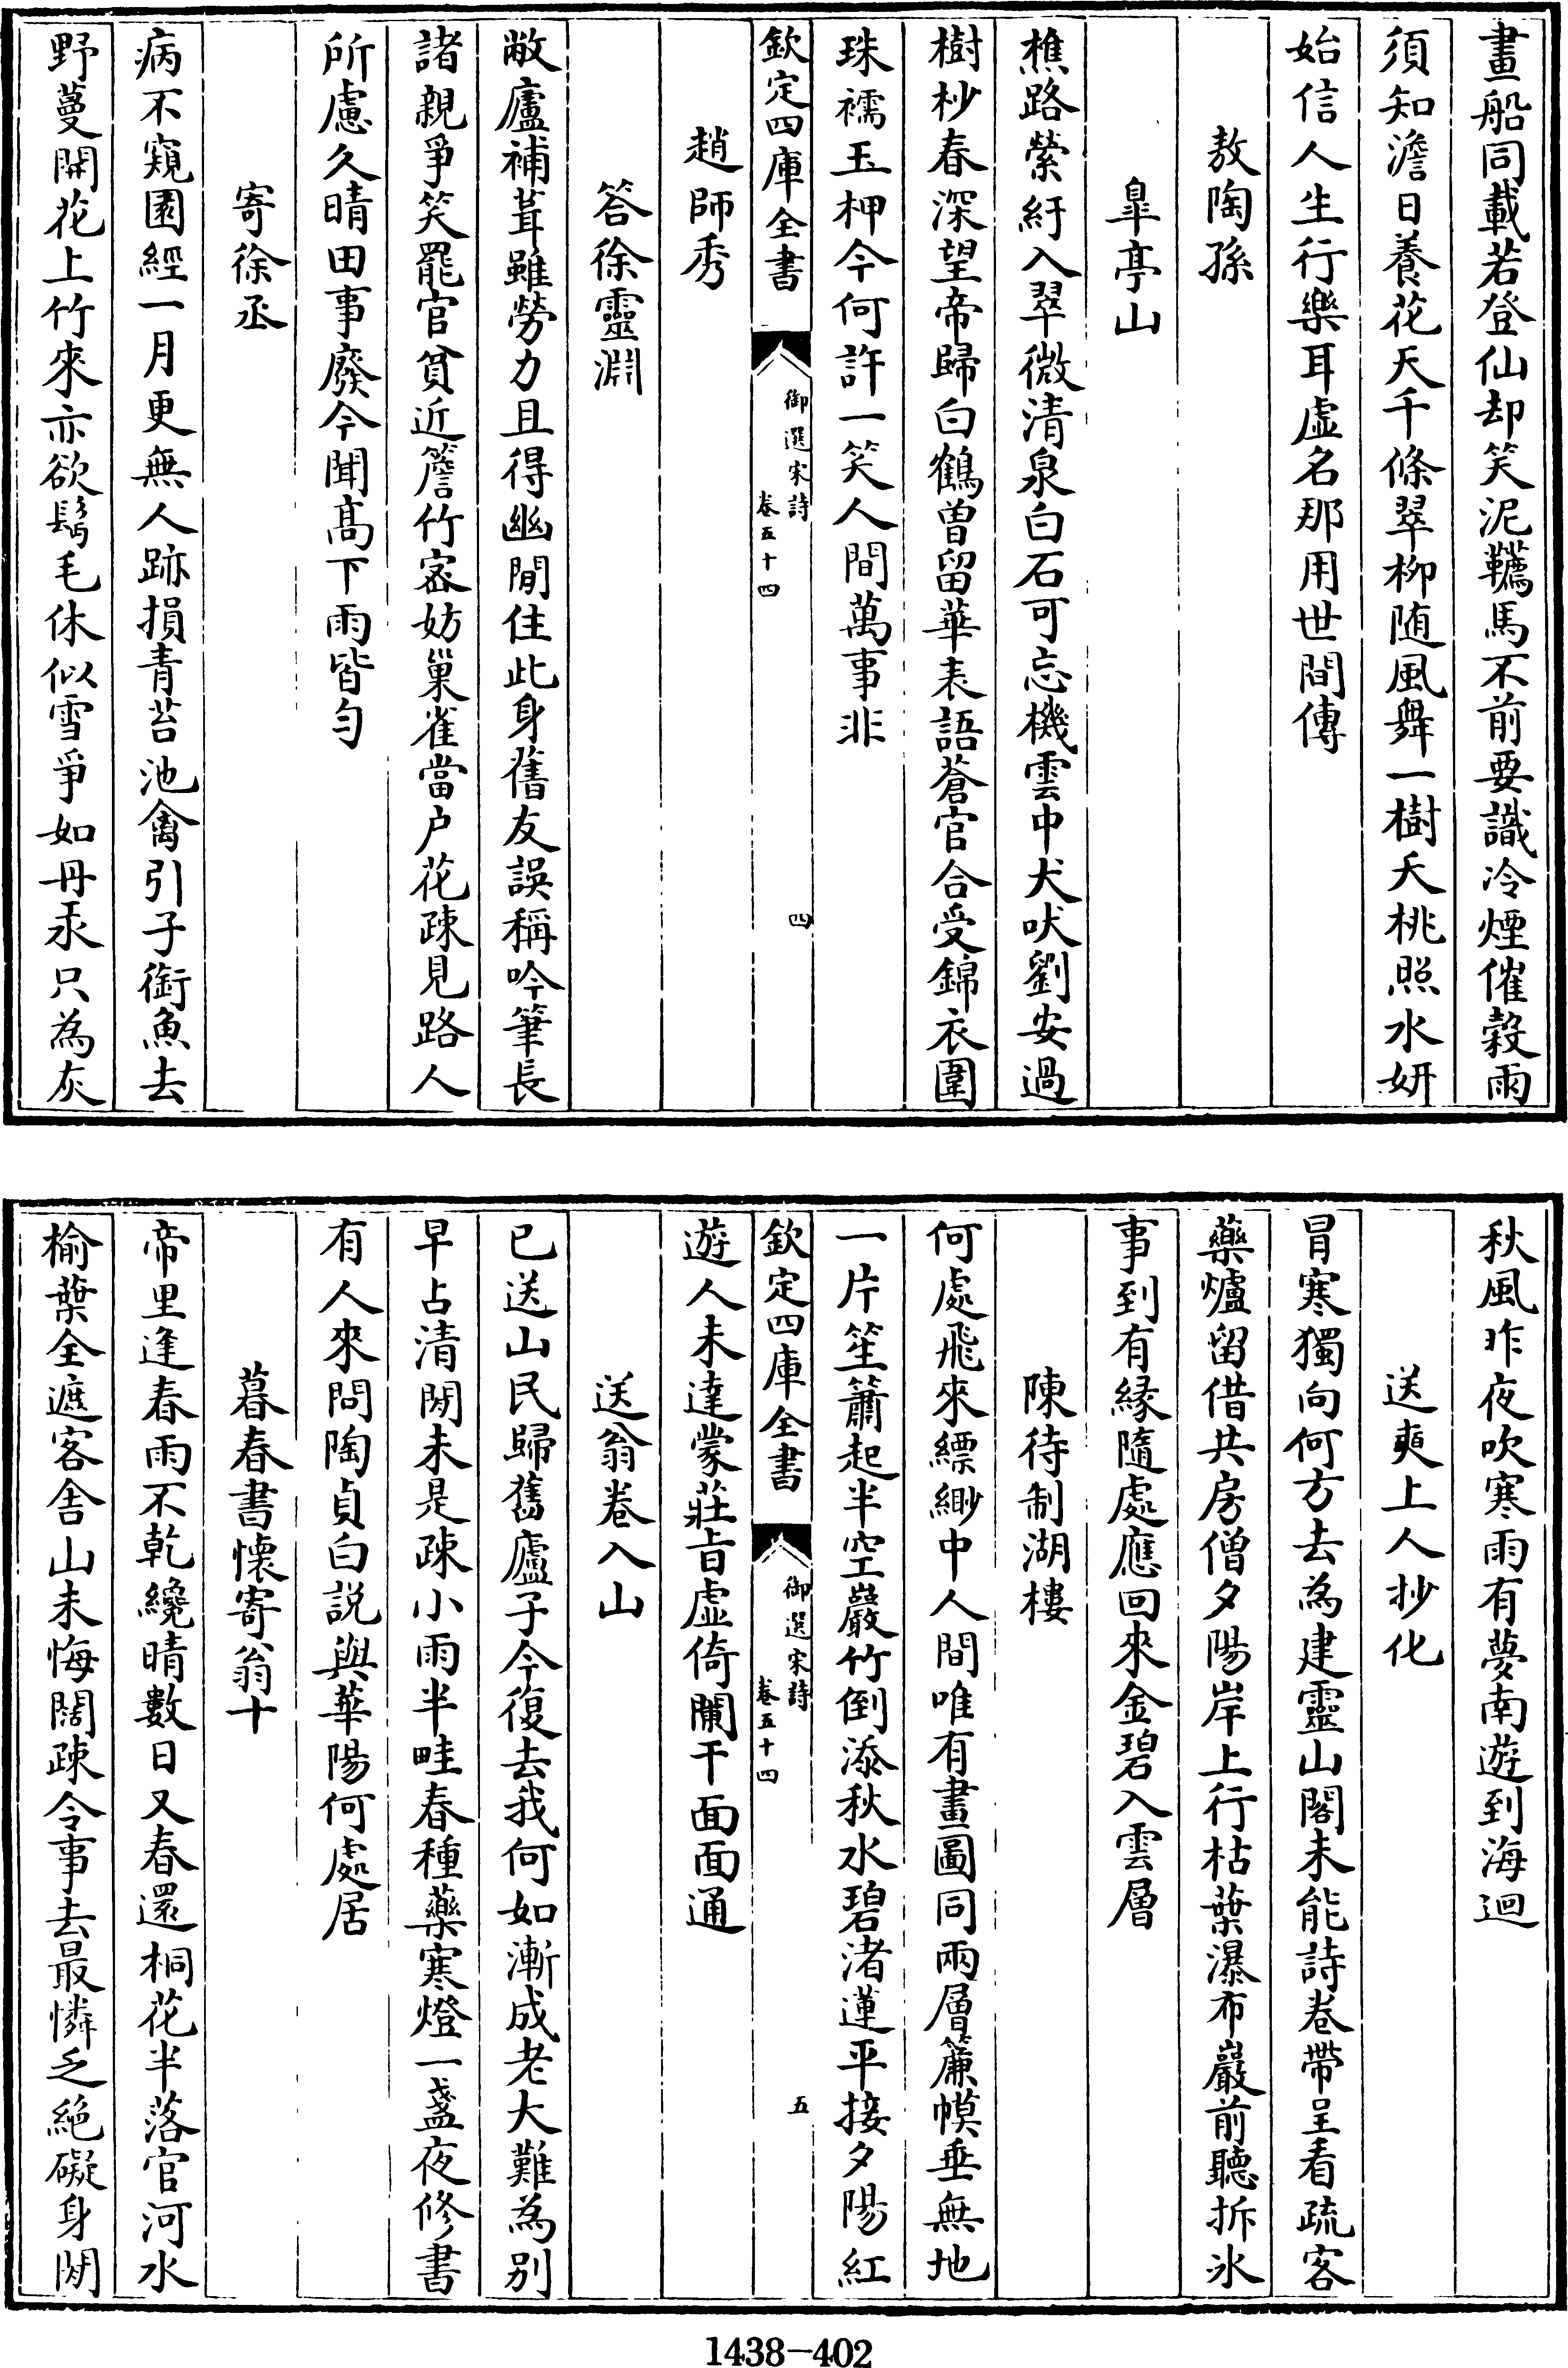 畫船同載若登仙却笑泥韉馬不前要識冷煙催穀雨
須知澹日養花天千條翠柳随風舞一樹夭桃照水妍
始信人生行樂耳虛名那用世間傳
敖陶孫
皐亭山
樵路縈紆入翠微清泉白石可忘機雲中犬吠劉安過
樹杪春深望帝歸白鶴曽留華表語蒼官合受錦衣圍
珠襦玉柙今何許一笑人間萬事非
欽定四庫全書
御選宋詩
卷五十四
四
趙師秀
答徐靈淵
敝廬補葺雖勞力且得幽閒住此身舊友誤稱吟筆長
諸親爭笑罷官貧近簷竹密妨巢雀當户花疎見路人
所慮久晴田事廢今聞髙下雨皆勻
寄徐丞
病不窺園經一月更無人跡損青苔池禽引子銜魚去
野蔓開花上竹來亦欲鬅毛休似雪爭如丹汞只為灰
秋風昨夜吹寒雨有夢南遊到海迴
送奭上人抄化
冒寒獨向何方去為建靈山閣未能詩卷帶呈看疏客
藥爐留借共房僧夕陽岸上行枯葉瀑布巖前聽拆氷
事到有縁隨處應回來金碧入雲層
陳待制湖樓
何處飛來縹緲中人間唯有畫圖同兩層簾幙垂無地
一片笙簫起半空巖竹倒添秋水碧渚蓮平接夕陽紅
欽定四庫全書
御選宋詩
卷五十四
五
遊人未達蒙莊旨虛倚闌干面面通
送翁卷入山
已送山民歸舊廬子今復去我何如漸成老大難為别
早占清閒未是疎小雨半畦春種藥寒燈一盞夜修書
有人來問陶貞白説與華陽何處居
暮春書懷寄翁十
帝里逢春雨不乾纔晴數日又春還桐花半落官河水
榆葉全遮客舎山未悔闊疎令事去最憐乏絶礙身閒
1438-402